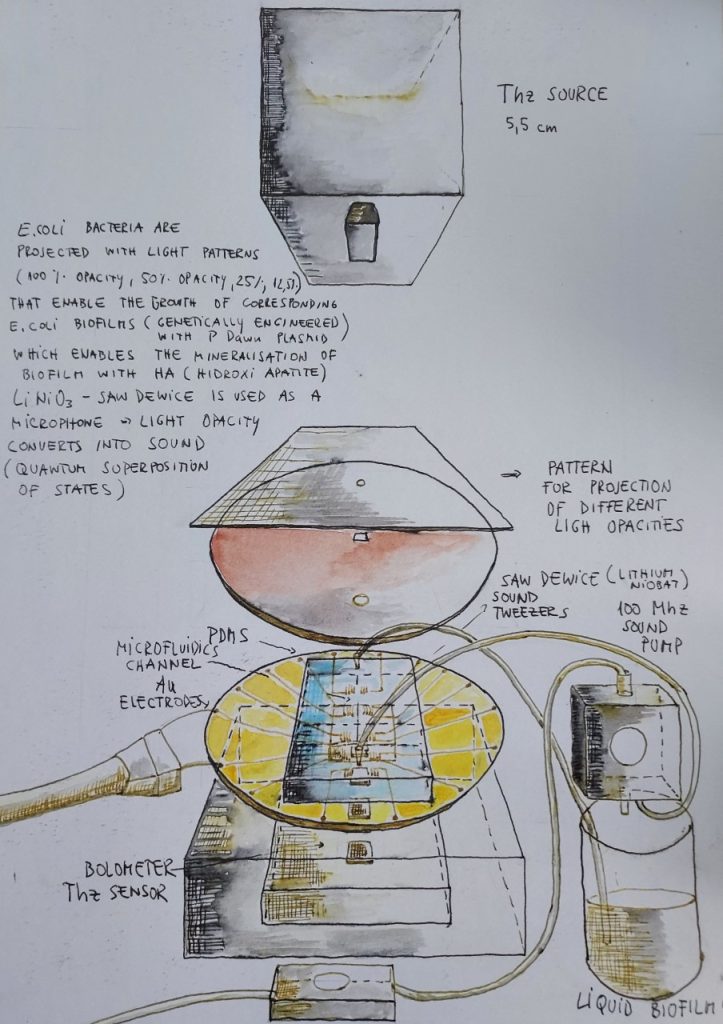 Thz SOURCE
5,5 cm
E.coli BACTERIA ARE
PROJECTED WITH LIGHT PATTERNS
(100 % OPACITY, 50% OPACITY, 25%, 12,5%)
THAT ENABLE THE GROWTH OF CORRESPONDING
E.coli BIOFILMS (GENETICALLY ENGINEERED)
WITH P Dawn PLASMID
WHICH ENABLES THE MINERALISATION OF
BIOFILM WITH HA (HIDROXI APATITE)
LiNiO3 - SAW DEWICE IS USED AS A
MICROPHONE → LIGHT OPACITY
CONVERTS INTO SOUND
(QUANTUM SUPERPOSITION
OF STATES)
→ PATTERN
FOR PROJECTION
OF DIFFERENT
LIGH OPACITIES
SAW DEWICE (LITHIUM
NIOBAT)
SOUND
TWEEZERS
100 Mhz
SOUND
PUMP
PDMS
MICROFLUIDICS
CHANNEL
AU
ELECTRODES
BOLOMETER
Thz SENSOR
LIQUID BIOFILM